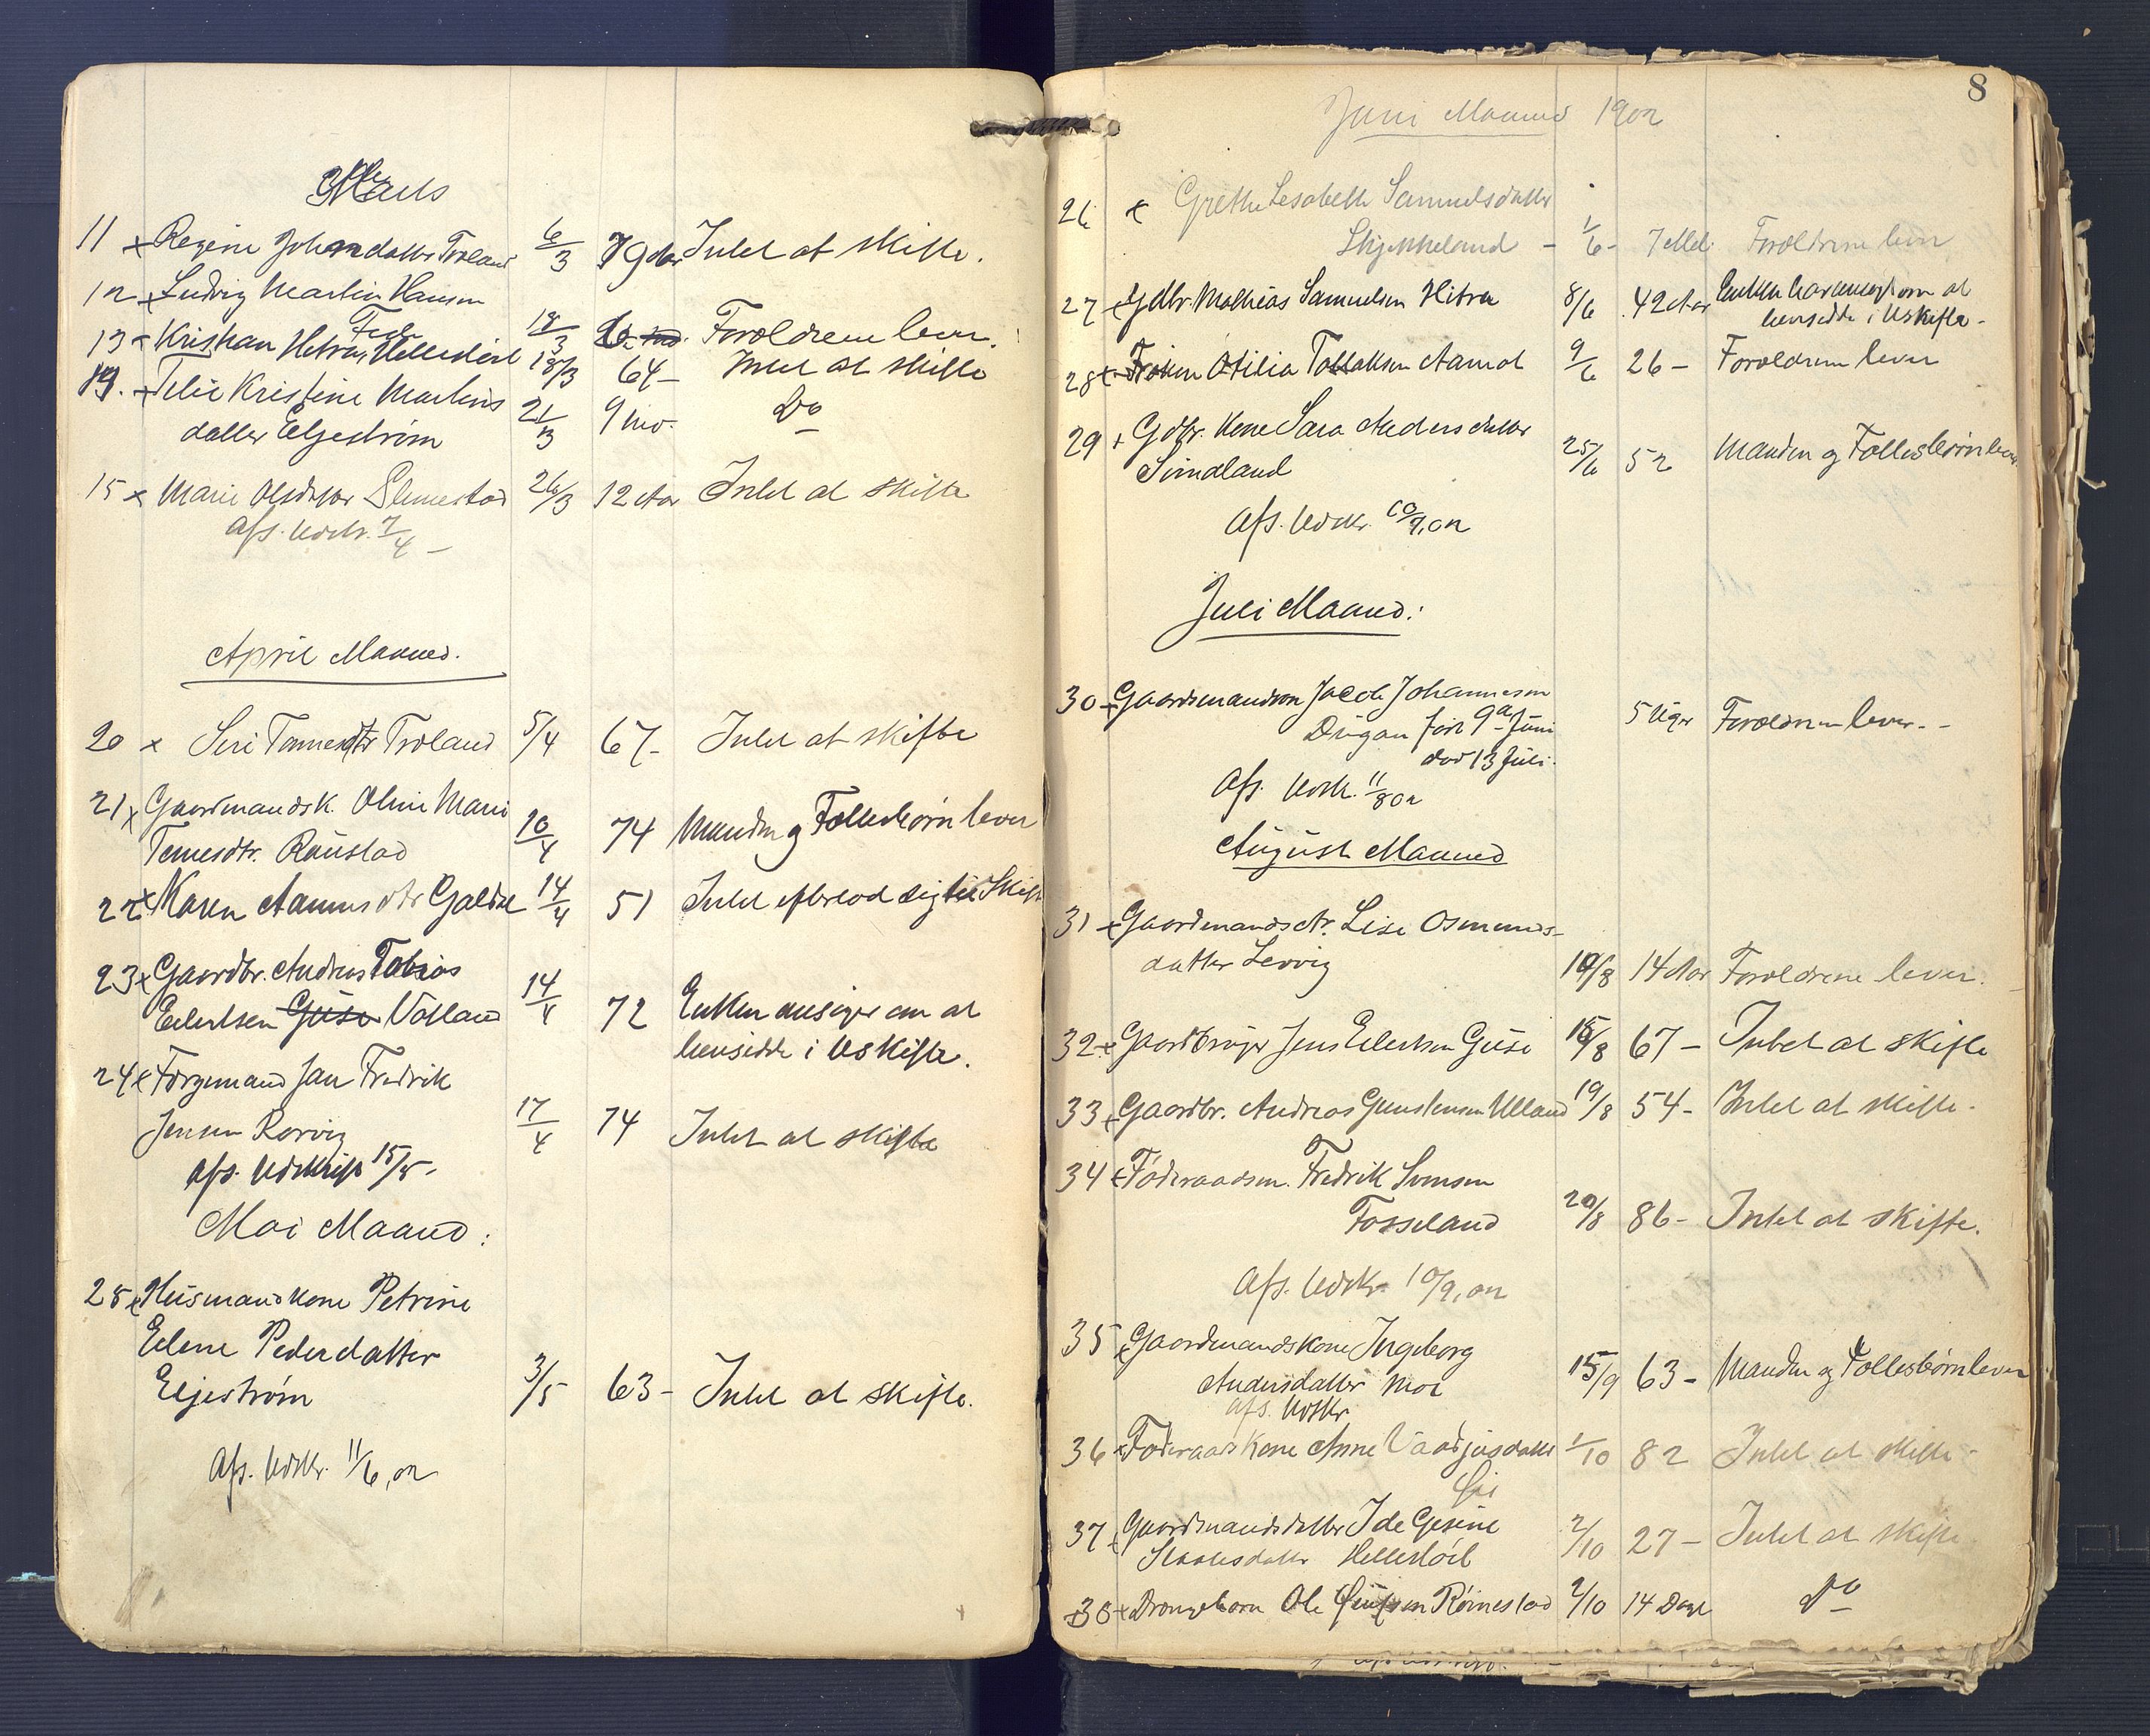 Marts
11 x Regine Johansdatter Troland 6/3 79 Aar Intet at skifte.
12 x Ludvig Martin Hansen
Feda 18/3 Forældrene lever.
13 x Kristian Hetras, Hellestöel 18/3 64 - Intet at skifte
19. x Telie Kristine Martins 21/3 9 mo. Do
datter Eljeström
15 x Marie Olsdatter Slimestad 26/3 12 Aar Intet at skifte
Afs. Udskr. 7/4 -
April Maaned.
20 x Siri Tønnesdtr Troland 5/4 67 - Intet at skifte
21 x Gaardmandsk. Oline Marie
Tønnesdtr. Raustad 10/4 74 Manden og Fællesbørn lever
22 x Karen Aanensdtr Galdal 14/4 51 Intet efterlod sig til Skifte
23 x Gaardbr. Andreas Tobias
Eilertsen Guse Vatland 14/4 72 Enken ansøger om at
hensidde i Uskifte.
24 x Forgemand Jan Fredrik
Jensen Rørvig 17/4 74 Intet at skifte
Afs. Udskrift 15/5 -
Mai Maaned:
25 x Husmandskone Petrine
Elene Pedersdatter
Eljeström 3/5 63 - Intet at skifte.
Afs. Udskr. 11/6, 02
8
Juni Maaned 1902
26 x Grethe Lesabeth Samuelsdatter
Skjekkeland - 1/6 - 7 Md. Forældrene lever
27 x Gdbr. Mathias Samuelsen Hitra 8/6 . 42 Aar Enken har om at
hensidde i Uskifte -
28 x Frøken Otilia Tallaksen Aamot 9/6 26 - Forældrene lever
29 x Gdbr. Kone Sara Andersdatter
Sindland 25/6 52 Manden og Fællesbørn lever
Afs. Udskr. 10/7, 02
Juli Maaned:
30 x Gaardmandssøn Jacob Johannesen
Dugan født 9de Juni 5 Uger Forældrene lever. -
død 13 Juli.
Afs. Udskr. 11/8 02
August Maaned
31 x Gaardmandsdtr. Lise Osmunds-
datter Lervig 10/8 14 Aar Forældrene lever.
32 x Gaardbruger Jens Eilertsen Guse 15/8 67 - Intet at skifte
33 x Gaardbr. Andreas Gunstensen Ulland 19/8 54 - Intet at skifte -
34 x Føderaadsm. Fredrik Svensen
Fosseland 20/8 86 - Intet at skifte.
Afs. Udskr. 10/9, 02
35 x Gaardmandskone Ingeborg
Andersdatter Moi 15/9 63 - Manden og Fællesbørn lever
Afs. Udskr.
36 x Føderaadskone Anne Vaadjusdatter 1/10 82 Intet at skifte -
37 x Gaardmandsdatter Ide Gesine
Staalesdatter Hellestöel 2/10 27 - Intet at skifte
38 x Drengebarn Ole Rørnestad 2/10 14 Dage Do